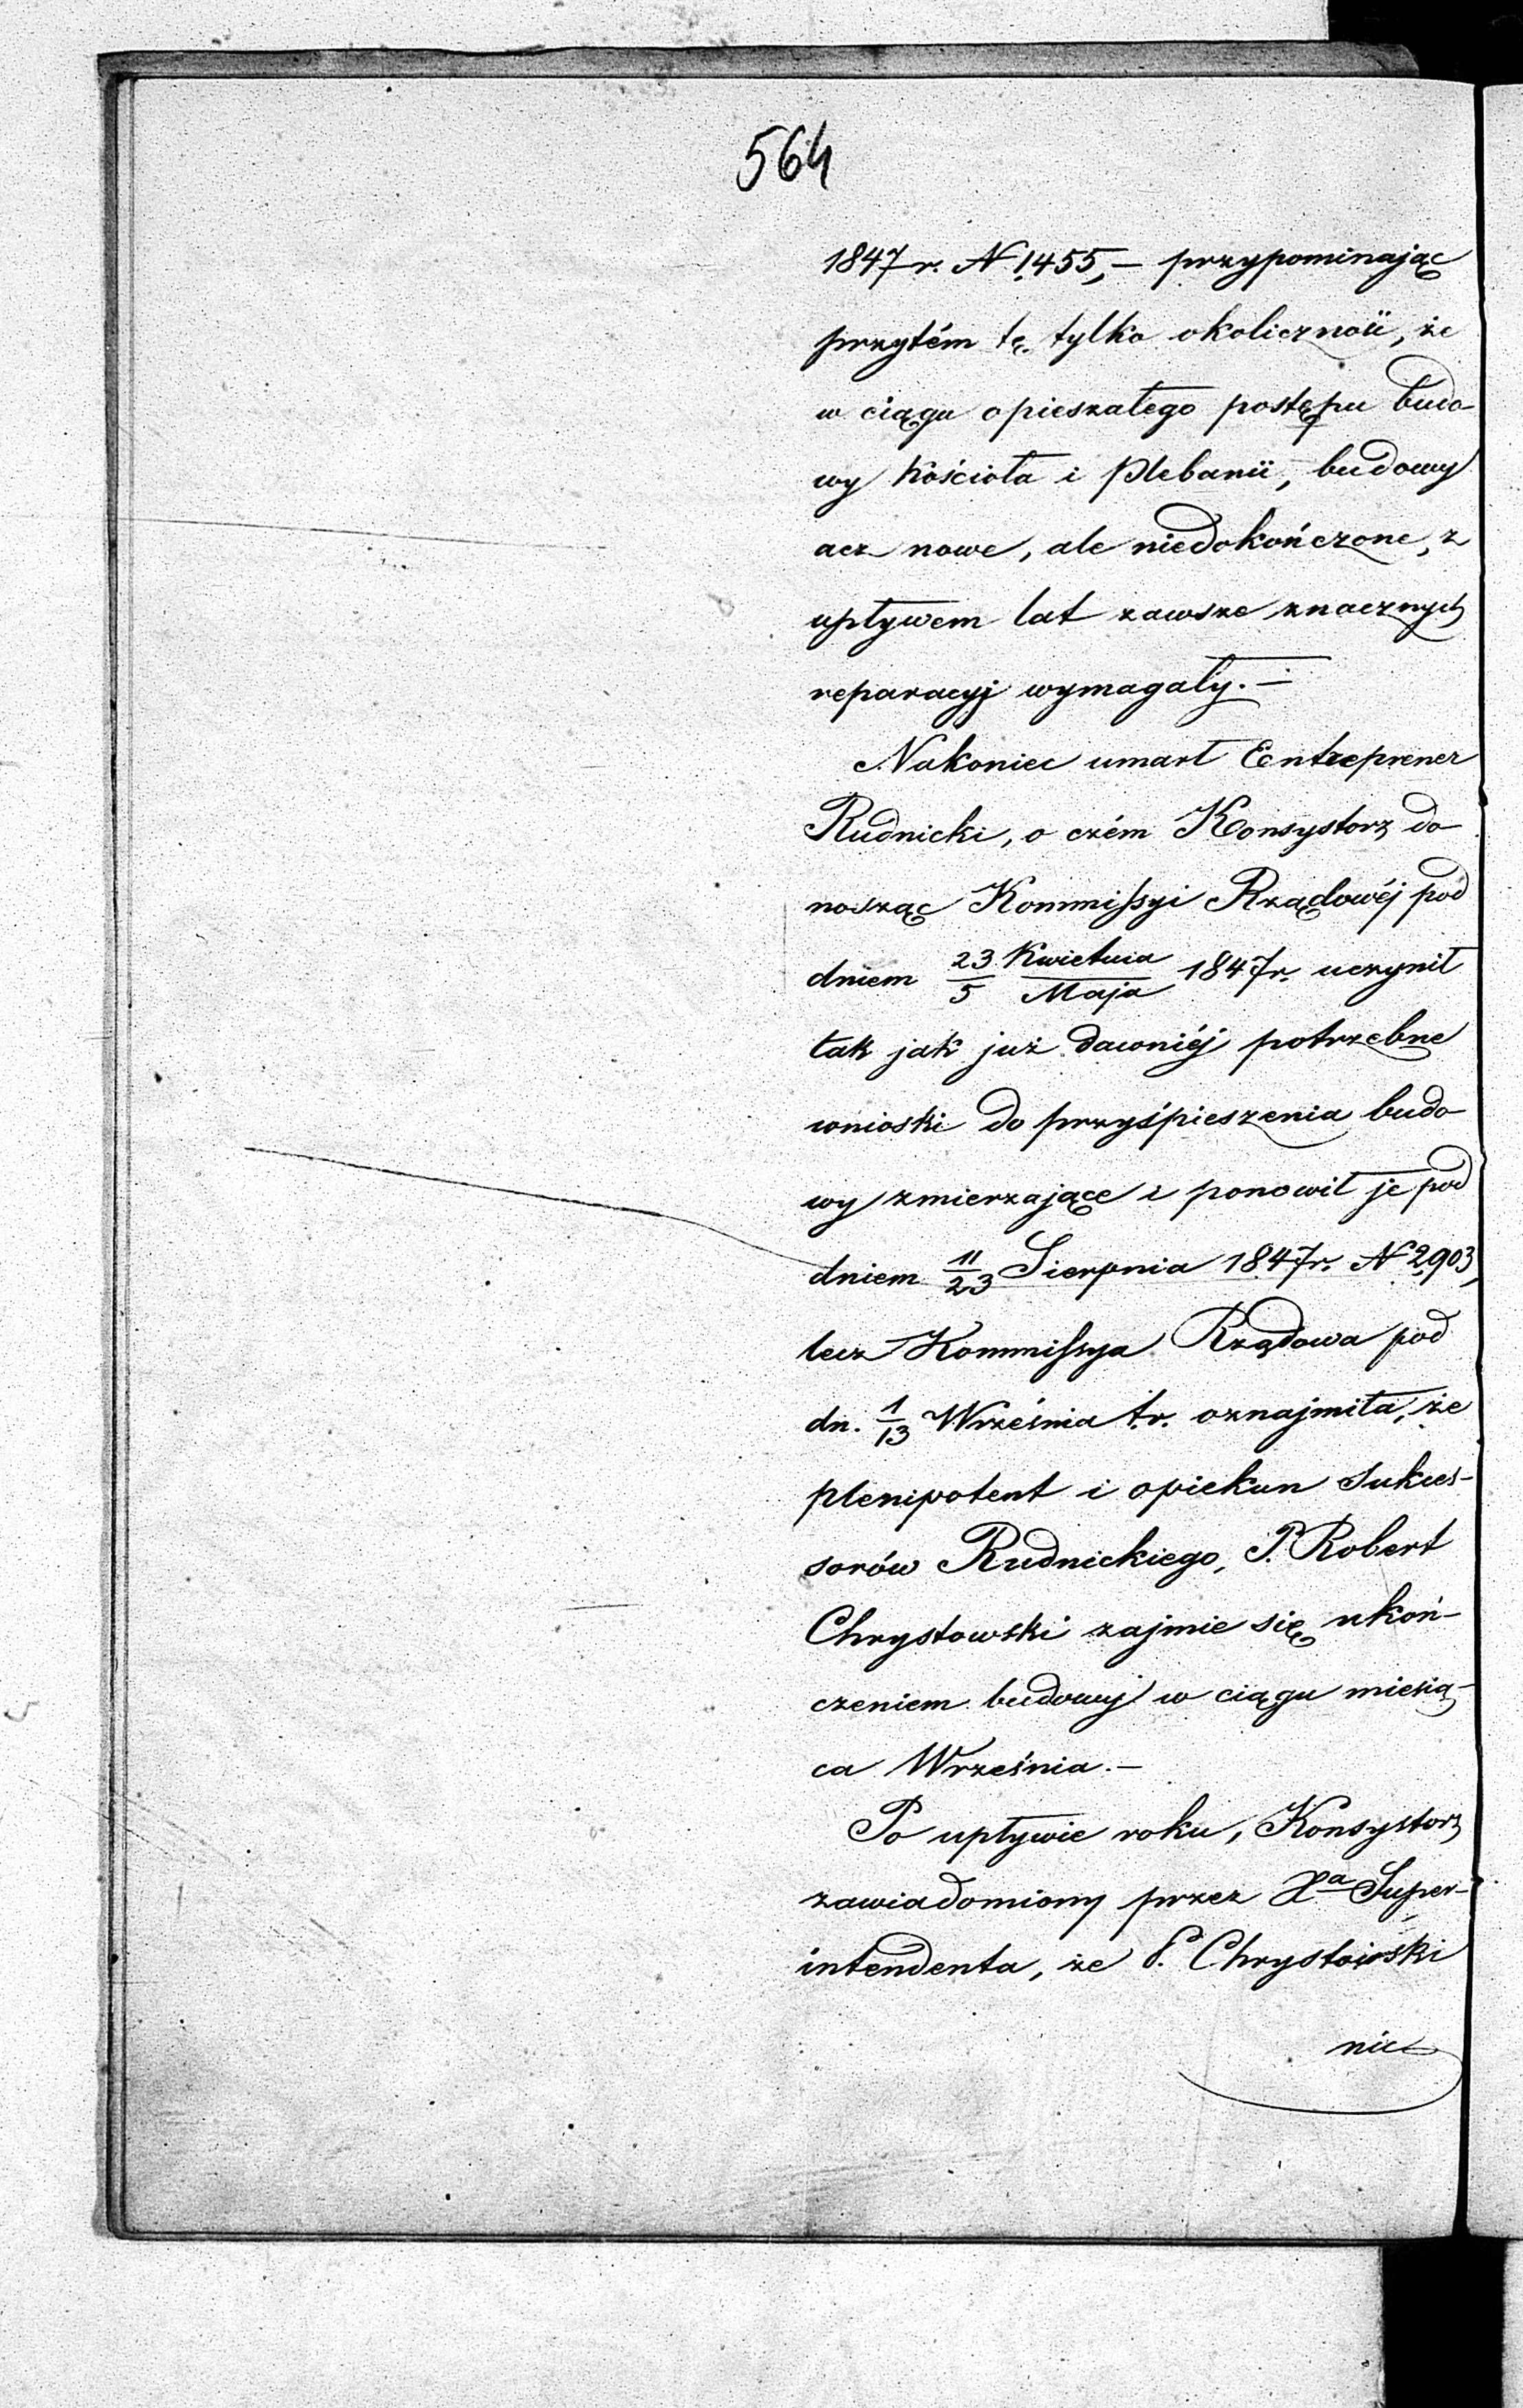 564
1847 r. N. 1455, — przypominając
przytém tę tylko okoliczność, że
w ciągu opieszałego postępu budo-
wy kościoła i Plebanii, budowy
acz nowe, ale niedokończone, z
upływem lat zawsze znacznych
reparacyj wymagały. —
Nakoniec umarł Entreprener
Rudnicki, o czém Konsystorz do-
nosząc Kommissyi Rządowéj pod
dniem 23/5 Kwietnia/Maja 1847 r. uczynił
tak jak już dawniéj potrzebne
wnioski do przyśpieszenia budo-
wy zmierzające i ponowił je pod
dniem 11/23 Sierpnia 1847 r. N. 2903,
lecz Kommissya Rządowa pod
dn. 1/13 Września t. r. oznajmiła, że
plenipotent i opiekun Sukces-
sorów Rudnickiego, P. Robert
Chrystowski zajmie się ukoń-
czeniem budowy w ciągu miesią-
ca Września. —
Po upływie roku, Konsystorz
zawiadomiony przez Xa Super-
intendenta, że P. Chrystowski
nic